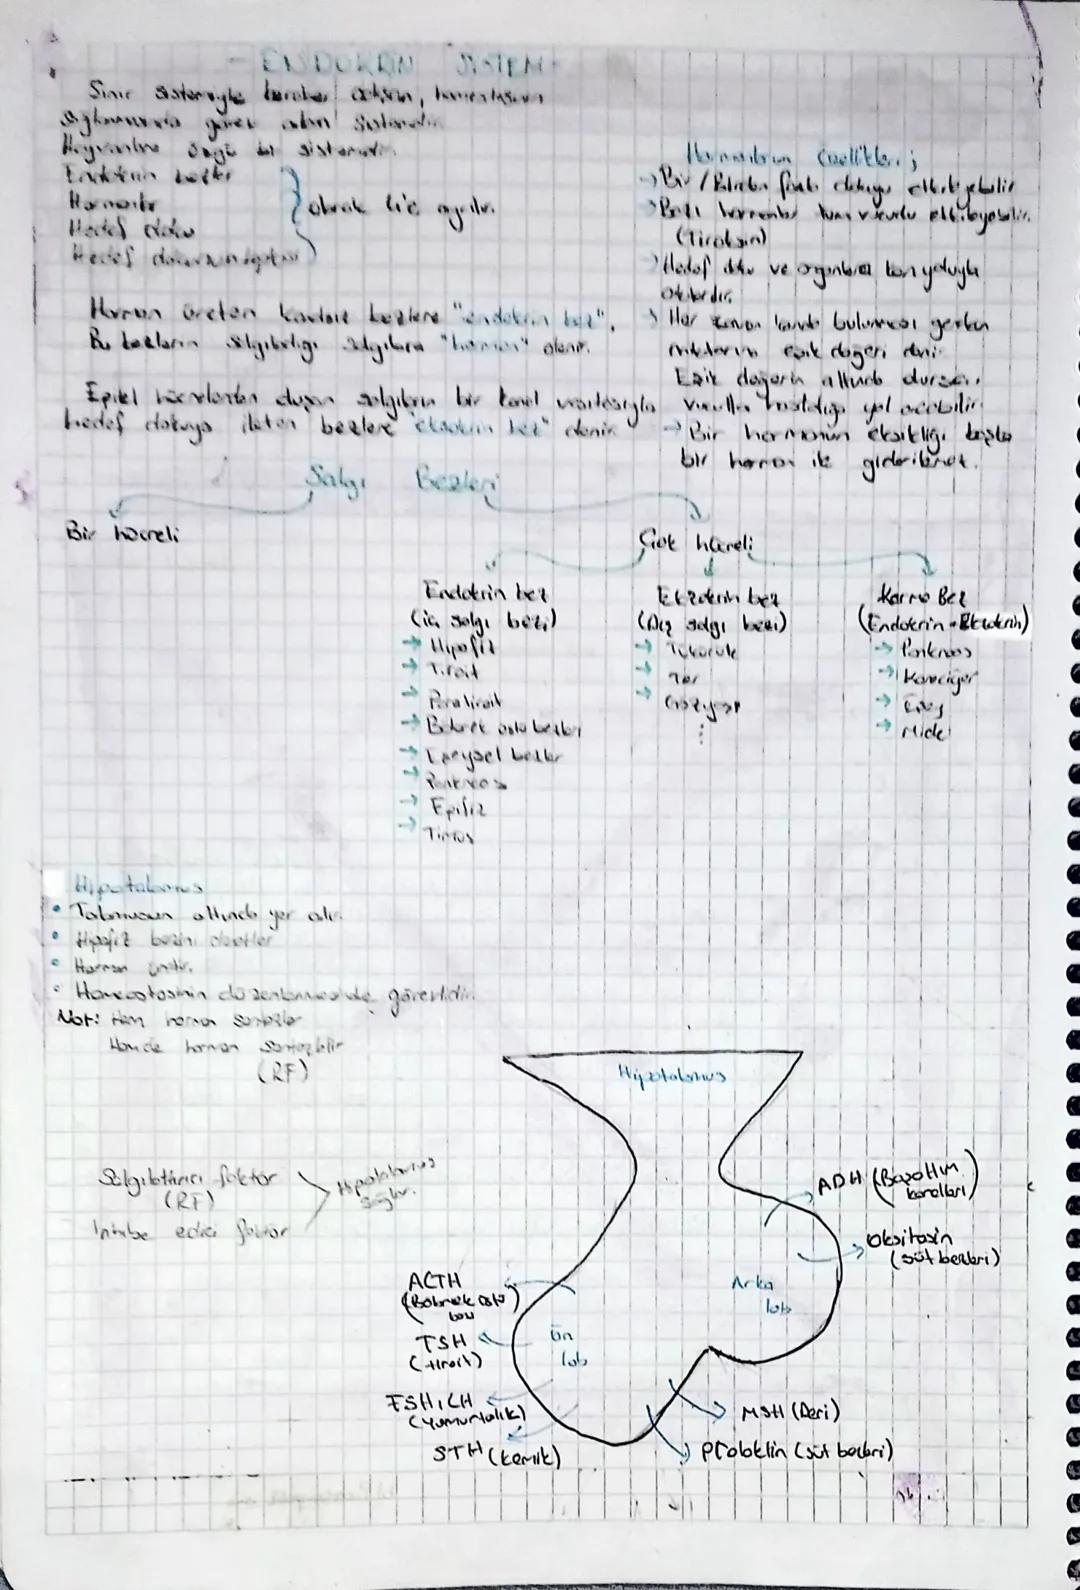 - ENDOKRİN SİSTEM -
Sinir sistemiyle beraber çalışan,
görev alan sistemdir.
Hayvanlara özgü bir sistemdir.
Endokrin bezler
Hormonlar
Hedef doku
Hedef
olarak ayrılır.
Hormon üreten kanalsız bezlere "endokrin bez",
Bu bezlerin salgıladığı salgılara "hormon" denir.
Epitel hücrelerden oluşan salgıların bir kanal vasıtasıyla
hedef dokuya ileten bezlere "ekzokrin bez" denir.
Hormonların Özellikleri;
→ Bir / Birden fazla dokuyu etkileyebilir
→ Bazı hormonlar tüm vücudu etkileyebilir.
(Tiroksin)
→ Hedef doku ve organlara kan yoluyla
→ Her zaman kanda bulunması gereken
miktarına eşik değeri denir
Eşik değerin altında dursa,
vücutta hastalığa yol açabilir
→ Bir hormonun eksikliği başka
bir hormon ile giderilemez.
Salgı Bezleri
Bir hücreli
Çok hücreli
Endokrin bez
(iç salgı bezi)
→ Hipofiz
→ Tiroit
→ Paratiroit
→ Böbrek üstü bezleri
→ Eşeysel bezler
→ Pankreas
→ Epifiz
→ Timus
Ekzokrin bez
(Dış salgı bezi)
→ Tükürük
→ Ter
→ Gözyaşı
⋮
Karma Bez
(Endokrin + Ekzokrin)
→ Pankreas
→ Karaciğer
→ Eşey
→ Mide
Hipotalamus
• Talamusun altında yer alır.
• Hipofiz bezini denetler
• Hormon üretir.
• Homeostasinin düzenlenmesinde görevlidir.
Not: Hem hormon
Hem de hormon
(RF)
Salgılattırıcı faktör
(RF)
İnhibe edici faktör
Hipotalamus
sağlar.
Hipotalamus
ADH (Boşaltım
kanalları)
Oksitosin
(süt bezleri)
Arka
lob
ACTH
(Böbrek üstü
bezi)
TSH
(tiroit)
Ön
lob
FSH, LH
(yumurtalık)
STH (kemik)
MSH (Deri)
Prolaktin (süt bezleri)